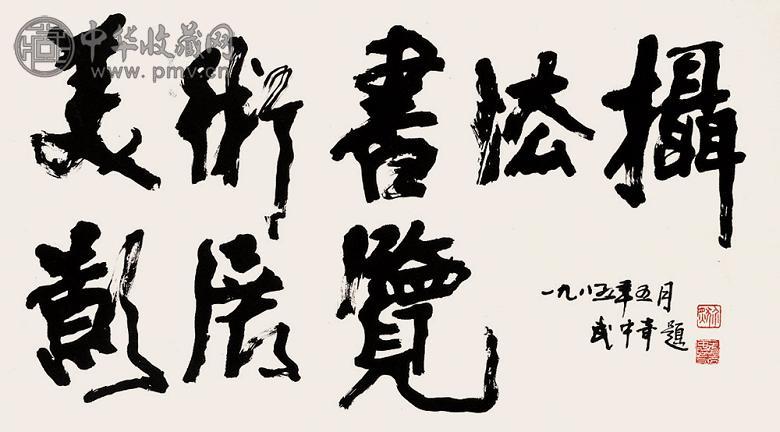 中华收藏网
www.pmv.cn
美術書法攝
影展覽
一九八五年五月
武中奇題